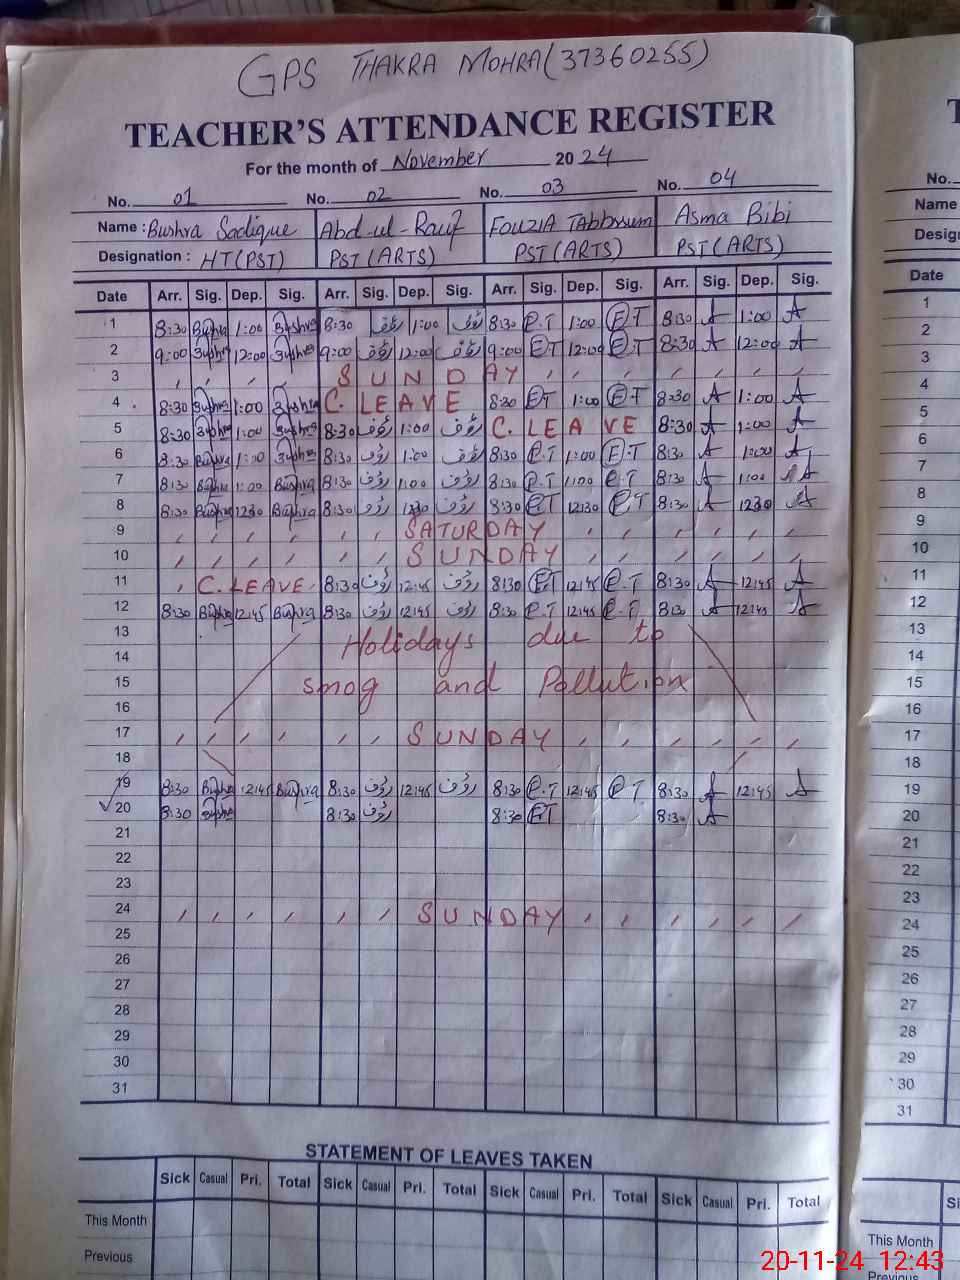 GPS THAKRA MOHRA (37360255)
TEACHER'S ATTENDANCE REGISTER
For the month of November 2024
No. 01 No. 02 No. 03 No. 04
Name : Bushra Sadique Abd-ul-Rauf Fouzia Tabbssum Asma Bibi
Designation : HT(PST) PST(ARTS) PST(ARTS) PST(ARTS)
Date Arr. Sig. Dep. Sig. Arr. Sig. Dep. Sig. Arr. Sig. Dep. Sig. Arr. Sig. Dep. Sig.
1 8:30 Bushra 1:00 Bushra 8:30 رؤف 1:00 رؤف 8:30 F.T 1:00 F.T 8:30 A 1:00 A
2 9:00 Bushra 12:00 Bushra 9:00 رؤف 12:00 رؤف 9:00 F.T 12:00 F.T 8:30 A 12:00 A
3 SUNDAY
4 8:30 Bushra 1:00 Bushra C. LEAVE 8:30 F.T 1:00 F.T 8:30 A 1:00 A
5 8:30 Bushra 1:00 Bushra 8:30 رؤف 1:00 رؤف C. LEAVE 8:30 A 1:00 A
6 8:30 Bushra 1:00 Bushra 8:30 رؤف 1:00 رؤف 8:30 F.T 1:00 F.T 8:30 A 1:00 A
7 8:30 Bushra 1:00 Bushra 8:30 رؤف 1:00 رؤف 8:30 F.T 1:00 F.T 8:30 A 1:00 A
8 8:30 Bushra 1230 Bushra 8:30 رؤف 1230 رؤف 8:30 F.T 12:30 F.T 8:30 A 1230 A
9 SATURDAY
10 SUNDAY
11 C. LEAVE 8:30 رؤف 12:45 رؤف 8:30 F.T 12:45 F.T 8:30 A 12:45 A
12 8:30 Bushra 12:45 Bushra 8:30 رؤف 12:45 رؤف 8:30 F.T 12:45 F.T 8:30 A 12:45 A
13 Holidays due to
14
15 smog and Pollution
16
17 SUNDAY
18
19 8:30 Bushra 12:45 Bushra 8:30 رؤف 12:45 رؤف 8:30 F.T 12:45 F.T 8:30 A 12:45 A
20 8:30 Bushra 8:30 رؤف 8:30 F.T 8:30 A
21
22
23
24 SUNDAY
25
26
27
28
29
30
31
STATEMENT OF LEAVES TAKEN
Sick Casual Pri. Total Sick Casual Pri. Total Sick Casual Pri. Total Sick Casual Pri. Total
This Month
Previous
No.
Name
Date
1
2
3
4
5
6
7
8
9
10
11
12
13
14
15
16
17
18
19
20
21
22
23
24
25
26
27
28
29
30
31
This Month
20-11-24 12:43